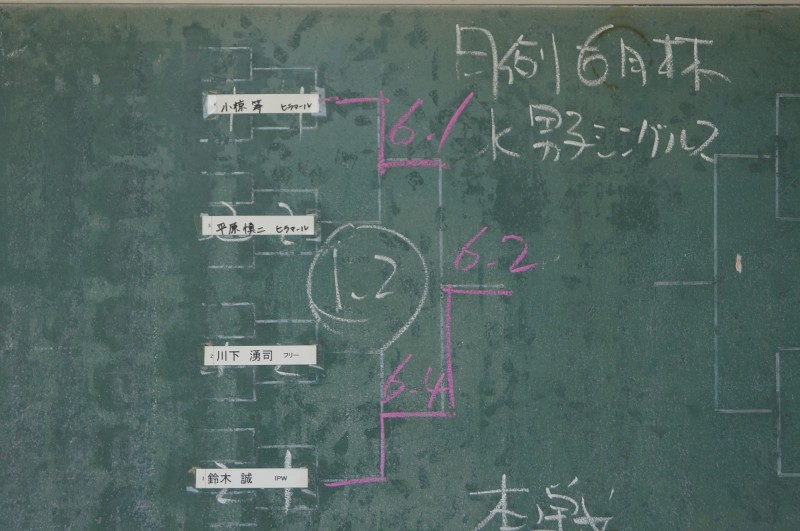 月例6月杯
K男子シングルス
小椋 ヒラマール
6.1
平原慎二 ヒラマール
1.2
6-2
川下 湧司 フリー
6-4
鈴木 誠 IPW
本戦